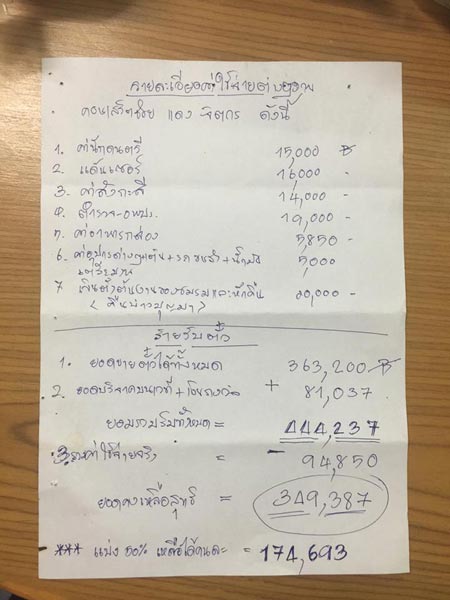 รายละเอียดค่าใช้จ่ายต่างๆงาน
คอนเสิร์ตช่วย แดง จิตกร ดังนี้
1. ค่านักดนตรี 15,000 ฿
2. แด้นเซอร์ 16,000 -
3. ค่าสังกะสี 14,000 -
4. ตำรวจ-อพปร. 19,000 -
5. ค่าอาหารกล่อง 5,850 -
6 ค่าอุปกรณ์ + รถขนส่ง + น้ำมัน 5,000
7 เงินตั้งต้นงานของชมรมและนักคืน 20,000 -
รายรับตั๋ว
1. ยอดขายตั๋วได้ทั้งหมด 363,200 ฿
2. ยอดบริจาคบนเวที + โอน + 81,037
ยอดรวมรับทั้งหมด = 444,237
3. รวมค่าใช้จ่ายจริง = - 94,850
ยอดคงเหลือสุทธิ = 349,387
*** แบ่ง 50% เหลือได้คนละ = 174,693